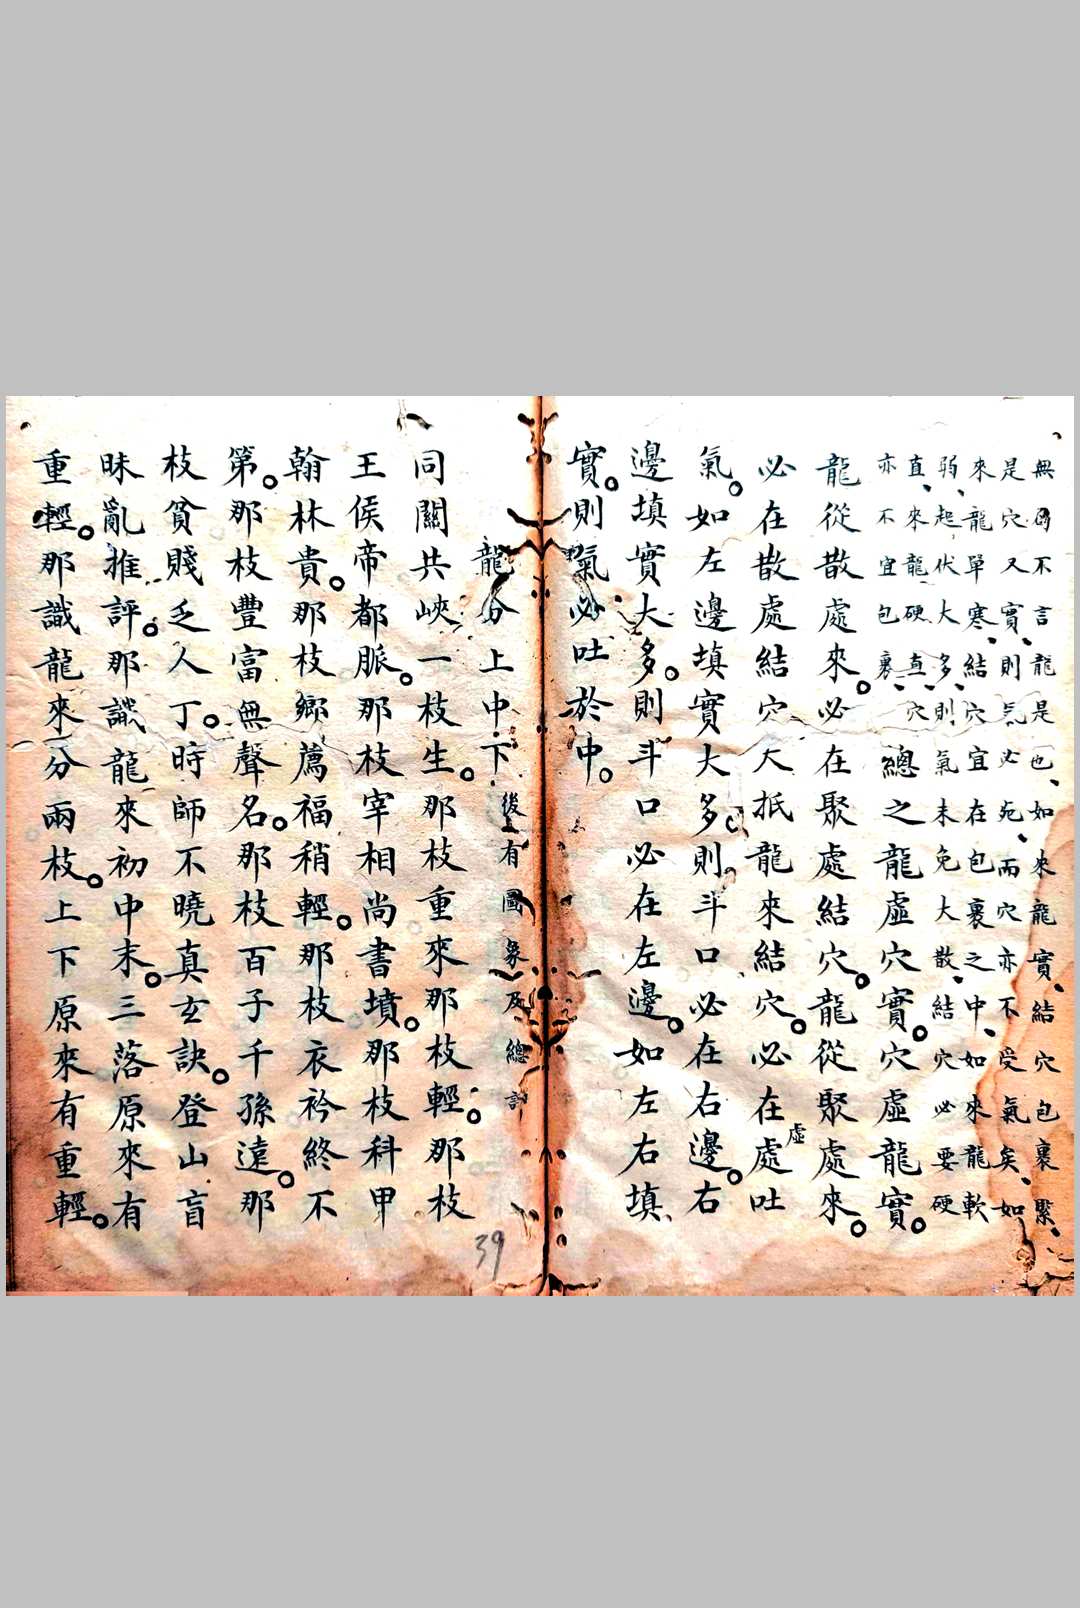 無砂不言龍是也、如來龍實、結穴包裹緊、
是穴又實、則氣必死、而穴亦不受氣矣、如
來龍單寒、結穴宜在包裹之中、如來龍軟
弱、起伏大多、則氣未免大散、結穴必要硬
直、來龍硬直、穴
亦不宜包裹、
總之龍虛穴實。穴虛龍實。
龍從散處來。必在聚處結穴。龍從聚處來。
必在散處結穴大抵龍來結穴。必在虛處吐
氣。如左邊填實大多。則斗口必在右邊。右
邊填實大多。則斗口必在左邊。如左右填
實。則氣必吐於中。
龍分上中下 後有圖象及總訂
同關共峽一枝生。那枝重來那枝輕。那枝
王侯帝都脈。那枝宰相尚書墳。那枝科甲
翰林貴。那枝鄉薦福稍輕。那枝衣衿終不
第。那枝豊富無聲名。那枝百子千孫遠。那
枝貧賤乏人丁。時師不曉真玄訣。登山盲
昧亂推評。那識龍來初中末。三落原來有
重輕。那識龍來分兩枝。上下原來有重輕。
39